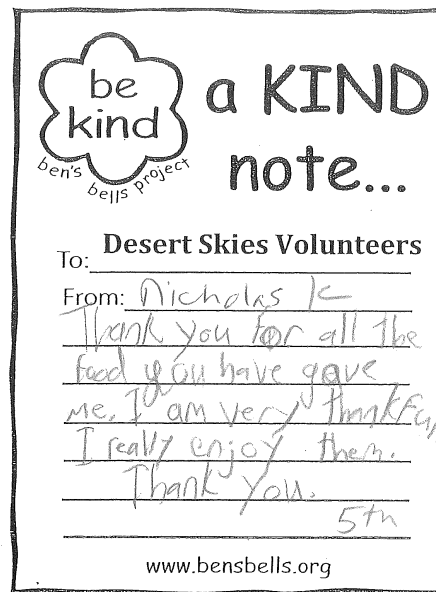 be
kind
ben's bells project
a KIND
note...
To: Desert Skies Volunteers
From: Nicholas K
Thank you for all the
food you have gave
me. I am very thankful
I really enjoy them.
Thank You.
5th
www.bensbells.org